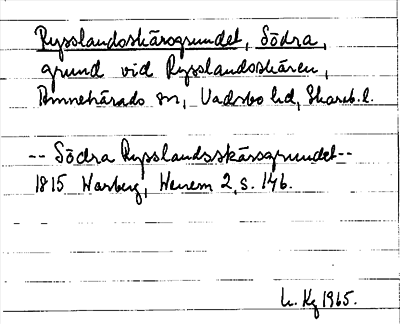 Rysslandsskärsgrundet, Södra,
grund vid Rysslandsskären,
Amnehärads sn, Vadsbo hd, Skarab. l.
-- Södra Rysslandsskärsgrundet --
1815 Warberg, Wenern 2, s. 146.
L. Kg 1965.